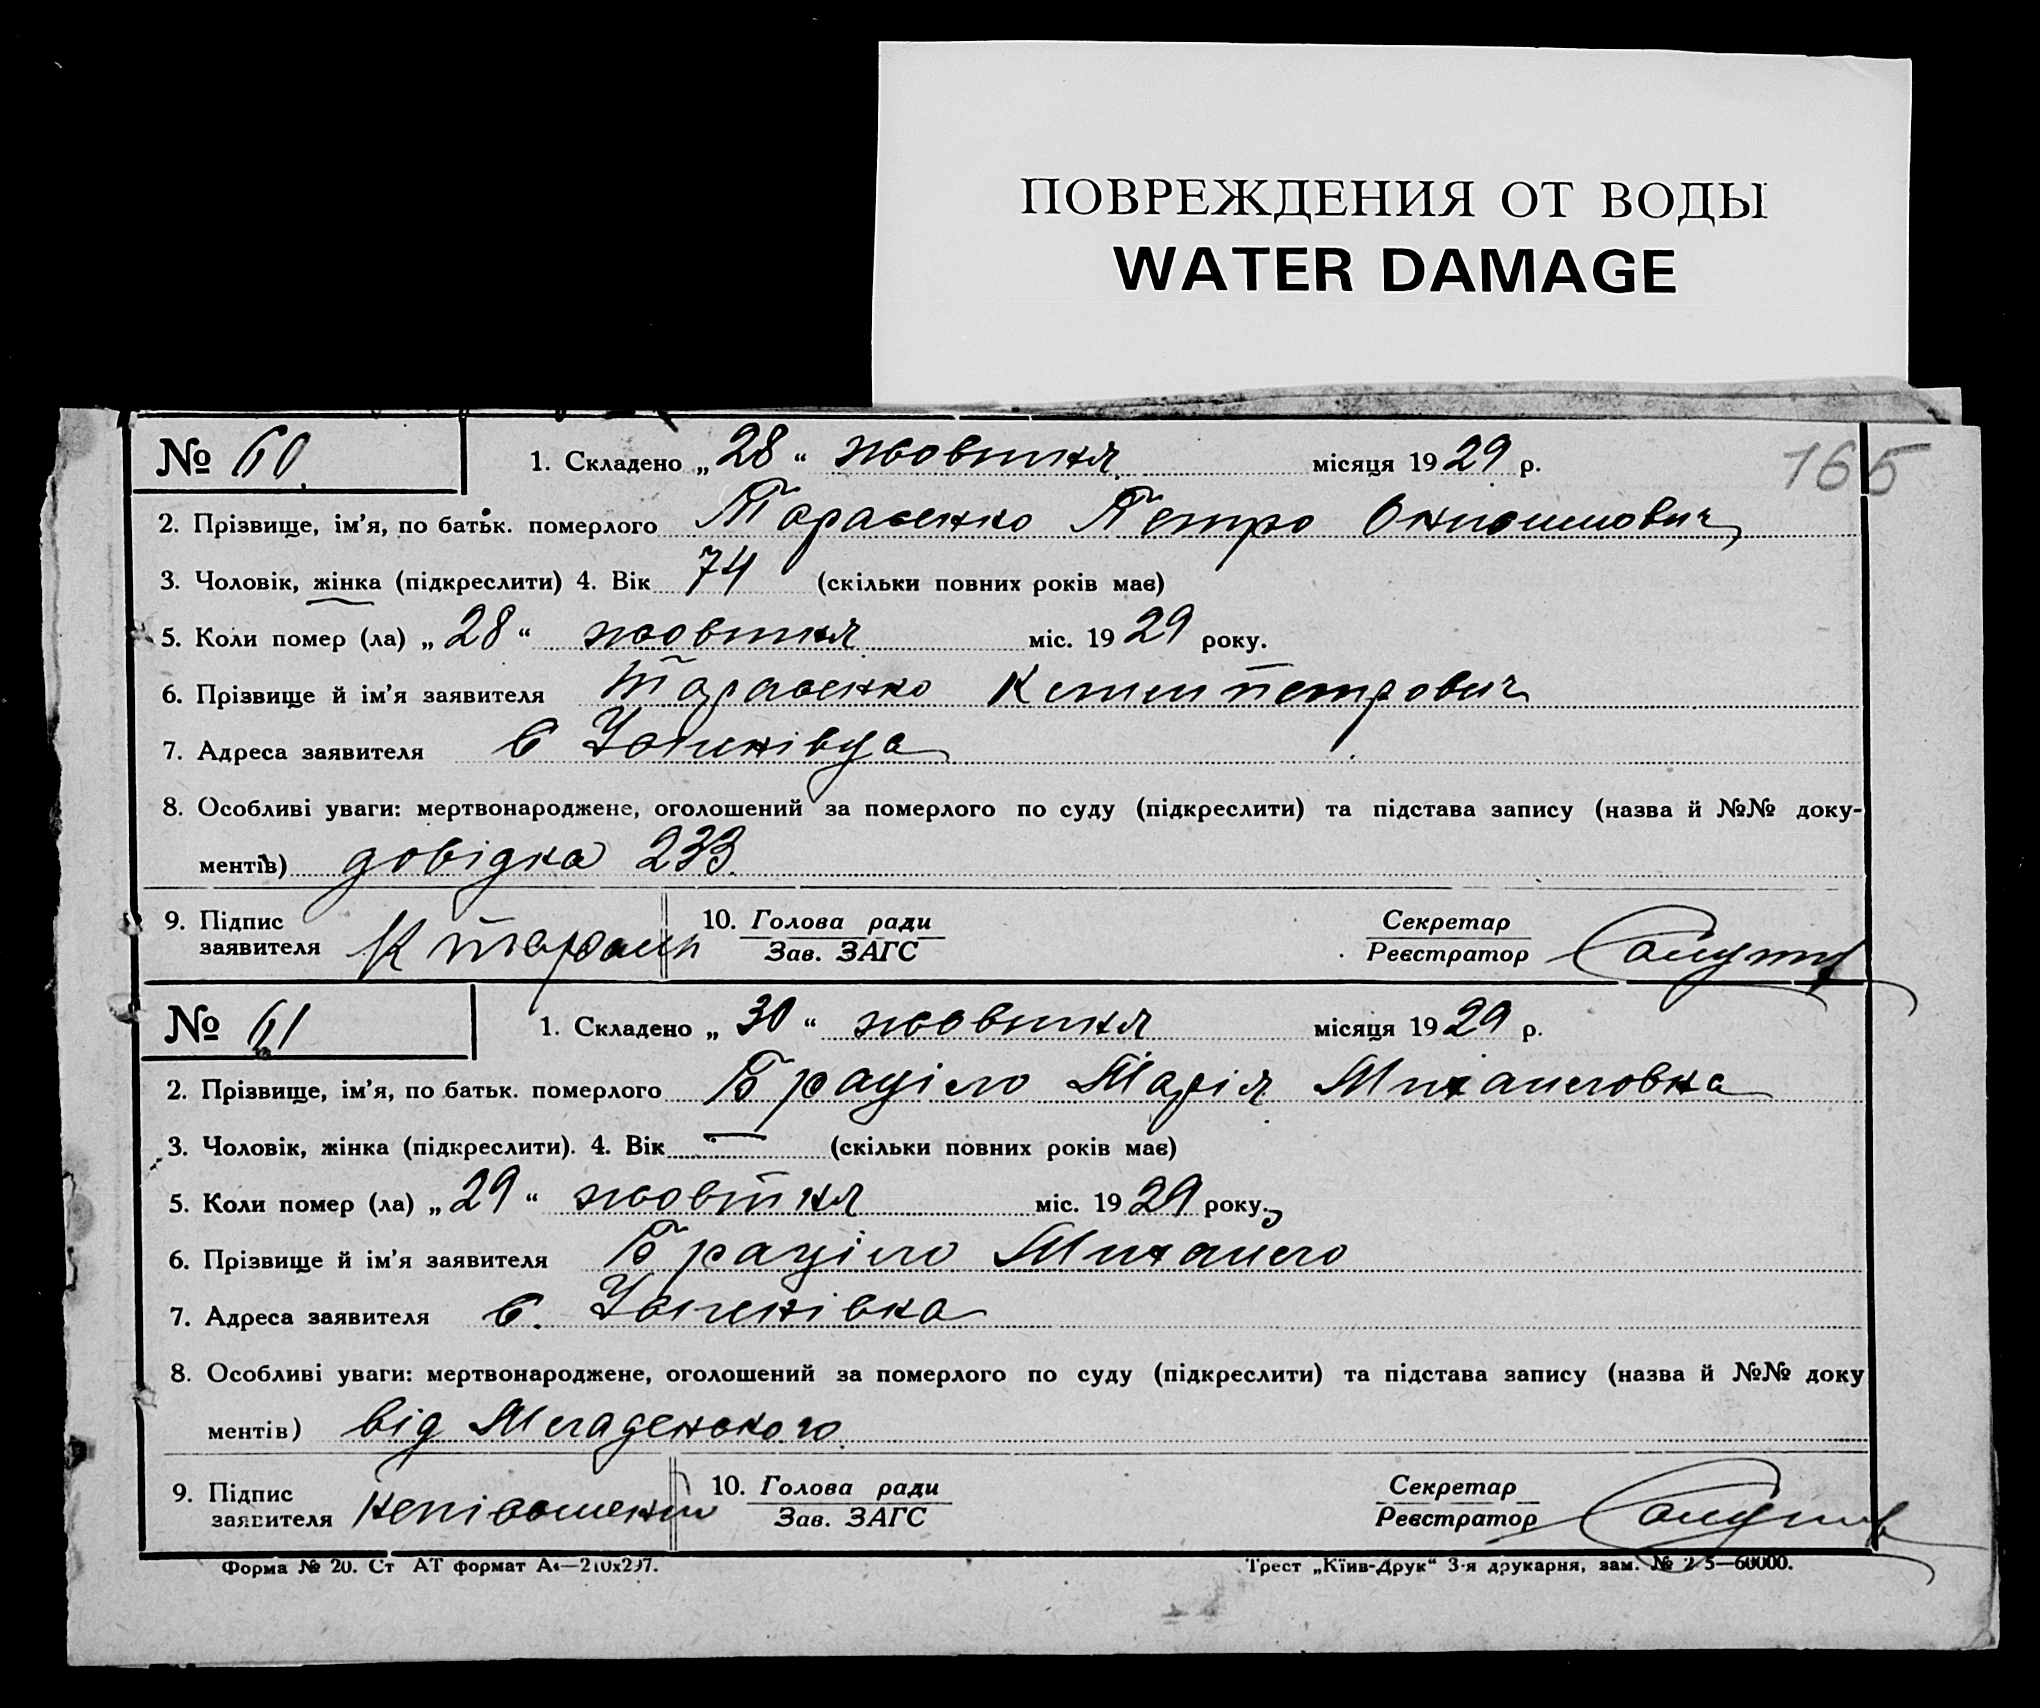 ПОВРЕЖДЕНИЯ ОТ ВОДЫ
WATER DAMAGE
165
№ 60. 1. Складено „28“ жовтня місяця 1929 р.
2. Прізвище, ім'я, по батьк. померлого Тарасенко Петро
3. Чоловік, жінка (підкреслити) 4. Вік 74 (скільки повних років має)
5. Коли помер (ла) „28“ жовтня міс. 1929 року.
6. Прізвище й ім'я заявителя Тарасенко Петрович
7. Адреса заявителя с
8. Особливі уваги: мертвонароджене, оголошений за померлого по суду (підкреслити) та підстава запису (назва й №№ доку-
ментів) довідка 233.
9. Підпис заявителя К 10. Голова ради Зав. ЗАГС Секретар Реєстратор
№ 61 1. Складено „30“ жовтня місяця 1929 р.
2. Прізвище, ім'я, по батьк. померлого Браціло Марія Михаиловна
3. Чоловік, жінка (підкреслити). 4. Вік — (скільки повних років має)
5. Коли помер (ла) „29“ жовтня міс. 1929 року.
6. Прізвище й ім'я заявителя Браціло Михаило
7. Адреса заявителя с.
8. Особливі уваги: мертвонароджене, оголошений за померлого по суду (підкреслити) та підстава запису (назва й №№ доку
ментів) від Младенського.
9. Підпис заявителя 10. Голова ради Зав. ЗАГС Секретар Реєстратор
Форма № 20. Ст АТ формат А4—210х297. Трест „Київ-Друк“ 3-я друкарня, зам. №